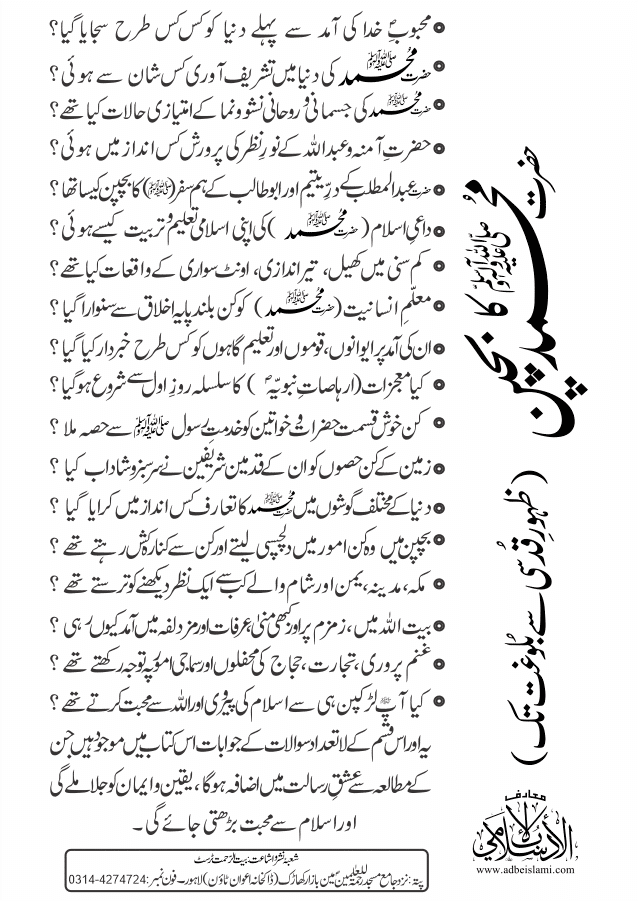 محبوبِ خدا کی آمد سے پہلے دنیا کو کس کس طرح سجایا گیا؟
حضرت محمد ﷺ کی دنیا میں تشریف آوری کس شان سے ہوئی؟
حضرت محمد ﷺ کی جسمانی و روحانی نشوونما کے امتیازی حالات کیا تھے؟
حضرتِ آمنہ و عبداللہ کے نورِ نظر کی پرورش کس انداز میں ہوئی؟
حضرت عبدالمطلب کے درِّ یتیم اور ابوطالب کے ہم سفر (ﷺ) کا بچپن کیسا تھا؟
داعیِ اسلام (حضرت محمد ﷺ) کی اپنی اسلامی تعلیم و تربیت کیسے ہوئی؟
کم سنی میں کھیل، تیر اندازی، اونٹ سواری کے واقعات کیا تھے؟
معلّمِ انسانیت (حضرت محمد ﷺ) کو کن بلند پایہ اخلاق سے سنوارا گیا؟
ان کی آمد پر ایوانوں، قوموں اور تعلیم گاہوں کو کس طرح خبردار کیا گیا؟
کیا معجزات (ارہاصاتِ نبویّہؐ) کا سلسلہ روزِ اول سے شروع ہو گیا؟
کن خوش قسمت حضرات و خواتین کو خدمتِ رسول ﷺ سے حصہ ملا؟
زمین کے کن حصوں کو ان کے قدمین شریفین نے سرسبز و شاداب کیا؟
دنیا کے مختلف گوشوں میں حضرت محمد ﷺ کا تعارف کس انداز میں کرایا گیا؟
بچپن میں وہ کن امور میں دلچسپی لیتے اور کن سے کنارہ کش رہتے تھے؟
مکہ، مدینہ، یمن اور شام والے کب سے ایک نظر دیکھنے کو ترستے تھے؟
بیت اللہ میں، زمزم پر اور کبھی منیٰ، عرفات اور مزدلفہ میں آمد کیوں رہی؟
غنم پروری، تجارت، حجاج کی محفلوں اور سماجی امور پہ توجہ رکھتے تھے؟
کیا آپ ﷺ لڑکپن ہی سے اسلام کی پیروی اور اللہ سے محبت کرتے تھے؟
یہ اور اس قسم کے لاتعداد سوالات کے جوابات اس کتاب میں موجود ہیں جن
کے مطالعہ سے عشقِ رسالت میں اضافہ ہوگا، یقین و ایمان کو جلا ملے گی
اور اسلام سے محبت بڑھتی جائے گی۔
شعبہ نشر و اشاعت: بیت الرحمت ٹرسٹ
پتہ: نزد جامع مسجد رحمۃ للعالمین مین بازار کھاڑک (ڈاکخانہ اعوان ٹاؤن) لاہور۔ فون نمبر: 0314-4274724
حضرت محمد ﷺ کا بچپن
(ظہورِ قدسی سے بلوغت تک)
معارف
www.adbeislami.com